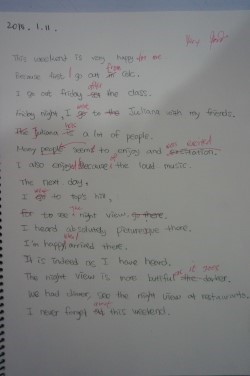 2014. 1. 11.
This weekend is very happy for me
Because first I go out from GBC.
I go out friday after the class.
friday night, I went go to the Juliana with my friends.
The Juliana has is a lot of people.
Many people seems to enjoy and
I also enjoyed because of the loud music.
The next day,
I go to tops hill,
for to see the night view. go there.
I heard absolutely picturesque there.
I'm happy when I arrived there.
It is Indeed as I have heard.
The Night View is more butiful the darker.
We had dinner, see the night view at restaurants.
I never forget this weekend.